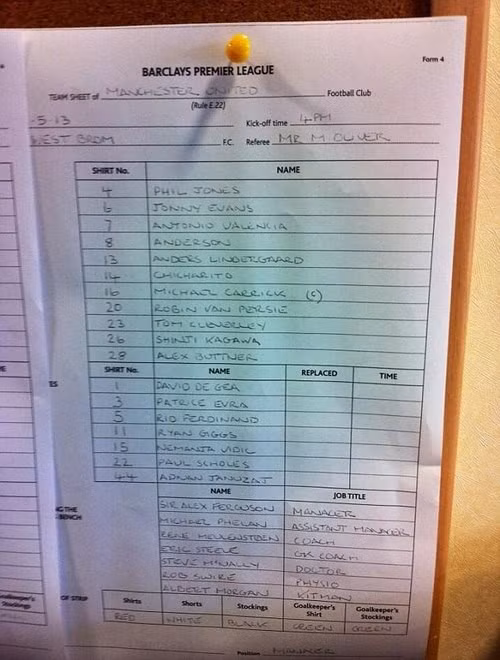 Form 4
BARCLAYS PREMIER LEAGUE
TEAM SHEET of MANCHESTER UNITED Football Club
(Rule E.22)
-5-13 Kick-off time 4PM
WEST BROM F.C. Referee MR M OLIVER
SHIRT No. NAME
4 PHIL JONES
6 JONNY EVANS
7 ANTONIO VALENCIA
8 ANDERSON
13 ANDERS LINDERGAARD
14 CHICHARITO
16 MICHAEL CARRICK (C)
20 ROBIN VAN PERSIE
23 TOM CLEVERLEY
26 SHINJI KAGAWA
28 ALEX BUTTNER
SHIRT No. NAME REPLACED TIME
1 DAVID DE GEA
3 PATRICE EVRA
5 RIO FERDINAND
11 RYAN GIGGS
15 NEMANJA VIDIC
22 PAUL SCHOLES
44 ADNAN JANUZAJ
NAME JOB TITLE
SIR ALEX FERGUSON MANAGER
MICHAEL PHELAN ASSISTANT MANAGER
RENE MEULENSTEEN COACH
ERIC STEELE GK COACH
STEVE McNALLY DOCTOR
ROB SWIRE PHYSIO
ALBERT MORGAN KITMAN
OF STRIP Shirts Shorts Stockings Goalkeeper's Shirt Goalkeeper's Stockings
RED WHITE BLACK GREEN GREEN
Position MANAGER